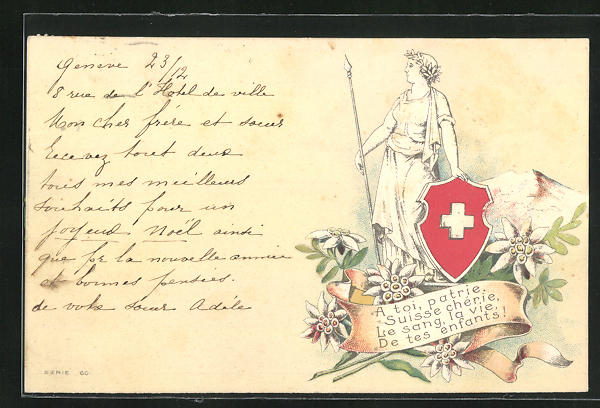 Genève 23/12
8 rue de l'Hotel de ville
Mon cher frére et sœur
Recevez tout deux
tous mes meilleurs
souhaits pour un
joyeux Noël ainsi
que pr la nouvelle année
et bonnes pensées.
de votre sœur Adèle
A toi, patrie,
Suisse chérie,
Le sang, la vie
De tes enfants!
SERIE 60